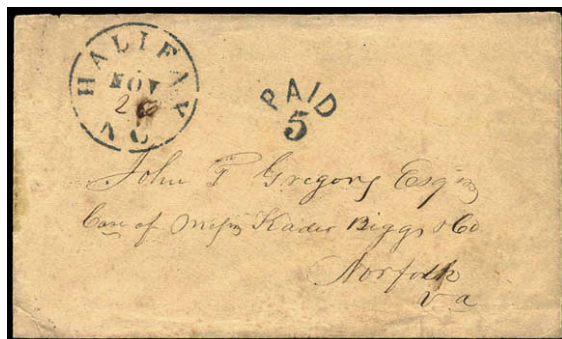 HALIFAX
NOV
26
N C
PAID
5
John T Gregory Esqr
Care of Messrs Kader Biggs & Co
Norfolk
Va